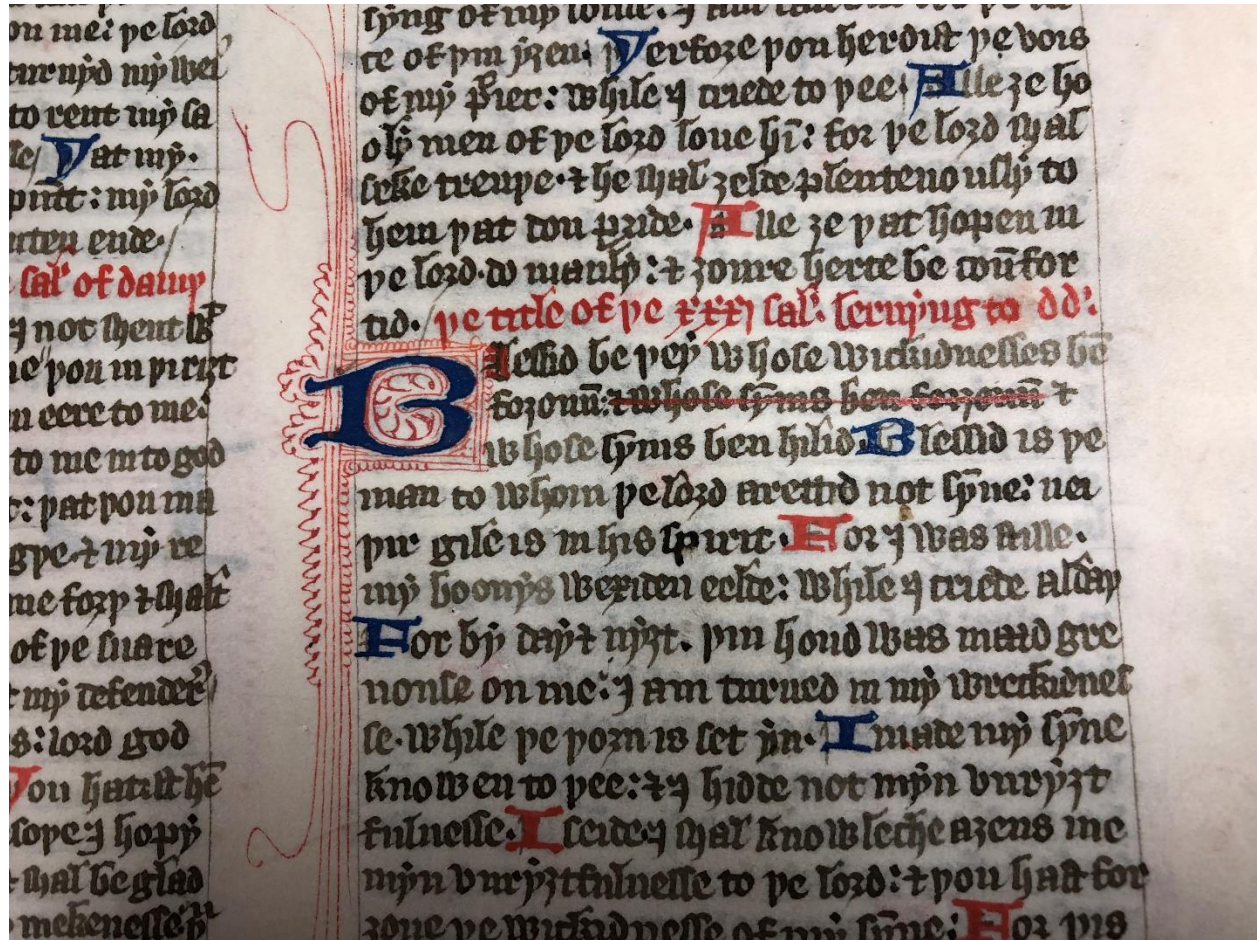 on me: þe lord
turnyd my wei
to rent my sa
Þat my.
my lord
uten ende.
sal' of dauiþ
I not shent
þou in þi riȝt
eere to me:
to me in to god
: þat þou ma
gþe. ⁊ my re
me forþ ⁊ shalt
of þe snare
my defender
s: lord god
Þou hatist hē
soþe I hopy
shal be glad
mekenesse
syng of my
ce of þin yȝen. Þerfore þou herdist þe vois
of my p̄ier: while I criede to þee. Alle ȝe ho
oly men of þe lord loue hī: for þe lord shal
seke treuþe. ⁊ he shal ȝelde plenteuously to
hem þat don pride. Alle ȝe þat hopen in
þe lord. do manly: ⁊ ȝoure herte be coūfor
tid. þe title of þe xxxj sal'. seruyng to dd'.
Blessid be þey whose wickidnesses bē
forȝouū: ⁊ whose synns ben forȝouū ⁊
whose synns ben hilid. Blessid is þe
man to whom þe lord arettid not synne: nei
þir gile is in his spirit. For I was stille.
my boonys wexiden eelde: while I criede alday
For by day ⁊ nyȝt. þin hond was maad gre
uouse on me: I am turned in my wreckidnes
se. while þe þorn is set yn. I made my synne
knowen to þee: ⁊ I hidde not myn vnryȝt
fulnesse. I seide I shal knowleche aȝens me
myn vnryȝtfulnesse to þe lord: ⁊ þou hast for
ȝoue þe wickidnesse of my synne: For þis